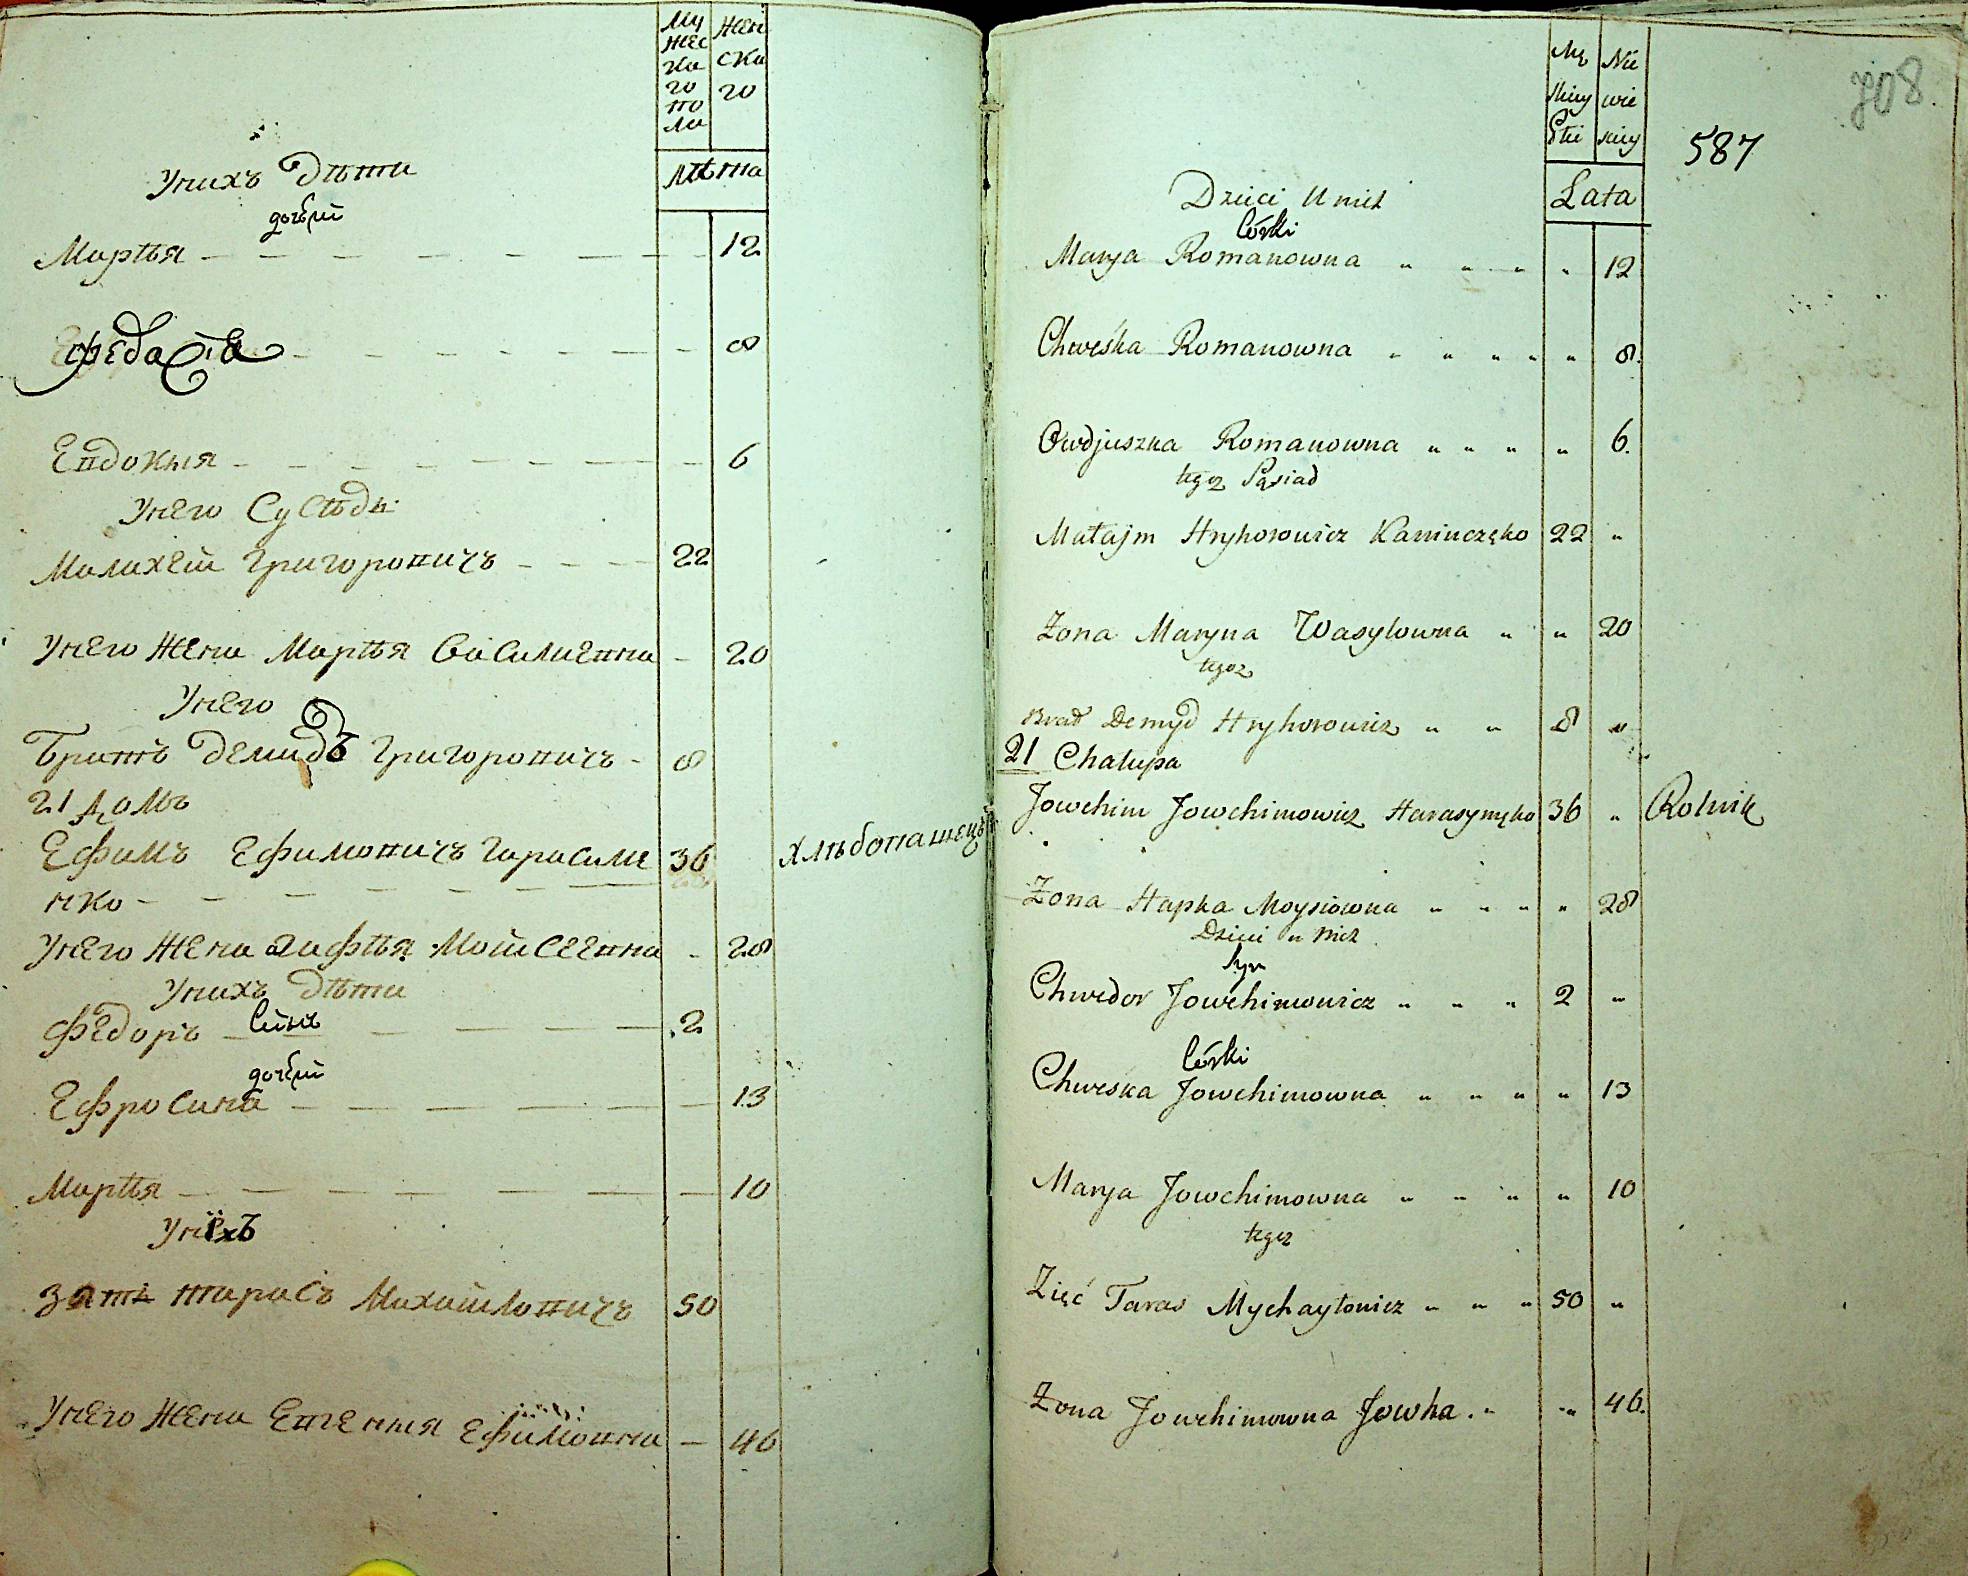 Му
жес
ка
го
по
ла
Жен
ска
го
Лѣта
Унихъ Дѣти
дочери
Марѣя 12
Федосія 8
Евдокия 6
Унего Сусѣди
Малахей Григоровичъ 22
Унего Жена Марѣя Василиевна 20
Унего
Братъ Демидъ Григоровичъ 8
21 Домъ
Ефимъ Ефимовичъ Гарасиме 36 хлѣбопашецъ
нко
Унего Жена Агафѣя Мойсеевна 28
Унихъ Дѣти
Федоръ Синъ 2
дочери
Ефросина 13
Марѣя 10
Унихъ
Зать Тарасъ Михайловичъ 50
Унего Жена Евгения Ефимовна 46
Mę
skiey
Płci
Nie
wie
skiey
708.
587
Lata
Dzieci U nich
Córki
Marya Romanowna " " " " 12
Chweśka Romanowna " " " " " 8.
Owdjuszka Romanowna " " " " 6.
tegoż Sąsiad
Małajm Hryhorowicz Kaniuczęko 22 "
Żona Maryna Wasylowna " " 20
tegoż
Brat Demyd Hryhorowicz " " 8 "
21 Chałupa
Jowchim Jowchimowicz Harasymęko 36 " Rolnik
Żona Hapka Moysiowna " " " " 28
Dzieci u nich
Syn
Chwedor Jowchimowicz " " " 2 "
Córki
Chweska Jowchimowna " " " " 13
Marya Jowchimowna " " " " 10
tegoż
Zięć Taras Mychayłowicz " " " 50 "
Żona Jowchimowna Jowka. " " 46.